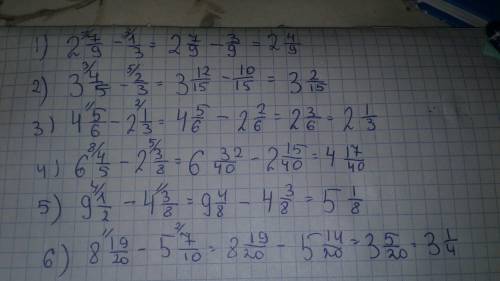 1) 2 7/9 - 3/ 1/3 = 2 7/9 - 3/9 = 2 4/9
2) 3 3/ 4/5 - 5/ 2/3 = 3 12/15 - 10/15 = 3 2/15
3) 4 1/ 5/6 - 2 2/ 1/3 = 4 5/6 - 2 2/6 = 2 3/6 = 2 1/3
4) 6 8/ 4/5 - 2 5/ 3/8 = 6 32/40 - 2 15/40 = 4 17/40
5) 9 4/ 1/2 - 4 1/ 3/8 = 9 4/8 - 4 3/8 = 5 1/8
6) 8 1/ 19/20 - 5 2/ 7/10 = 8 19/20 - 5 14/20 = 3 5/20 = 3 1/4